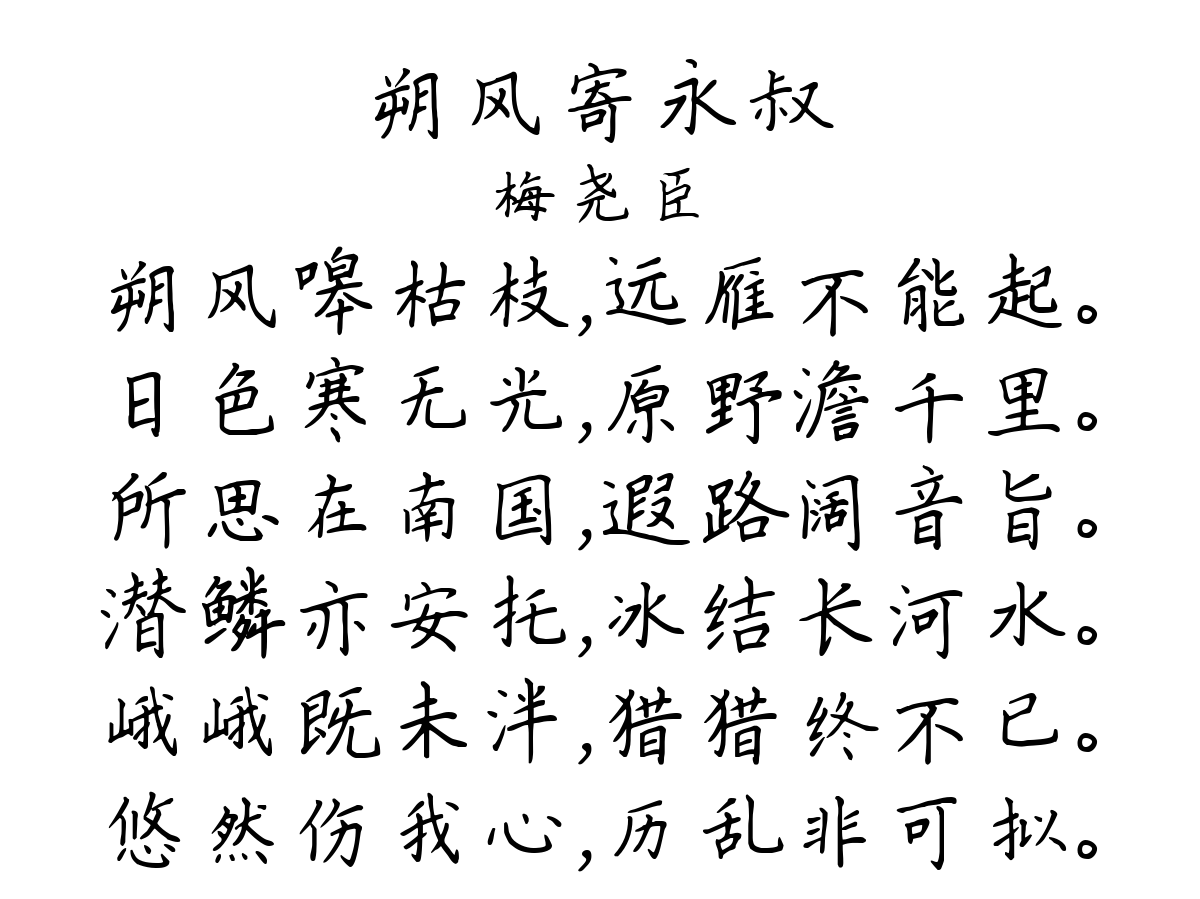 朔风寄永叔
梅尧臣
朔风嗥枯枝,远雁不能起。
日色寒无光,原野澹千里。
所思在南国,遐路阔音旨。
潜鳞亦安托,冰结长河水。
峨峨既未泮,猎猎终不已。
悠然伤我心,历乱非可拟。